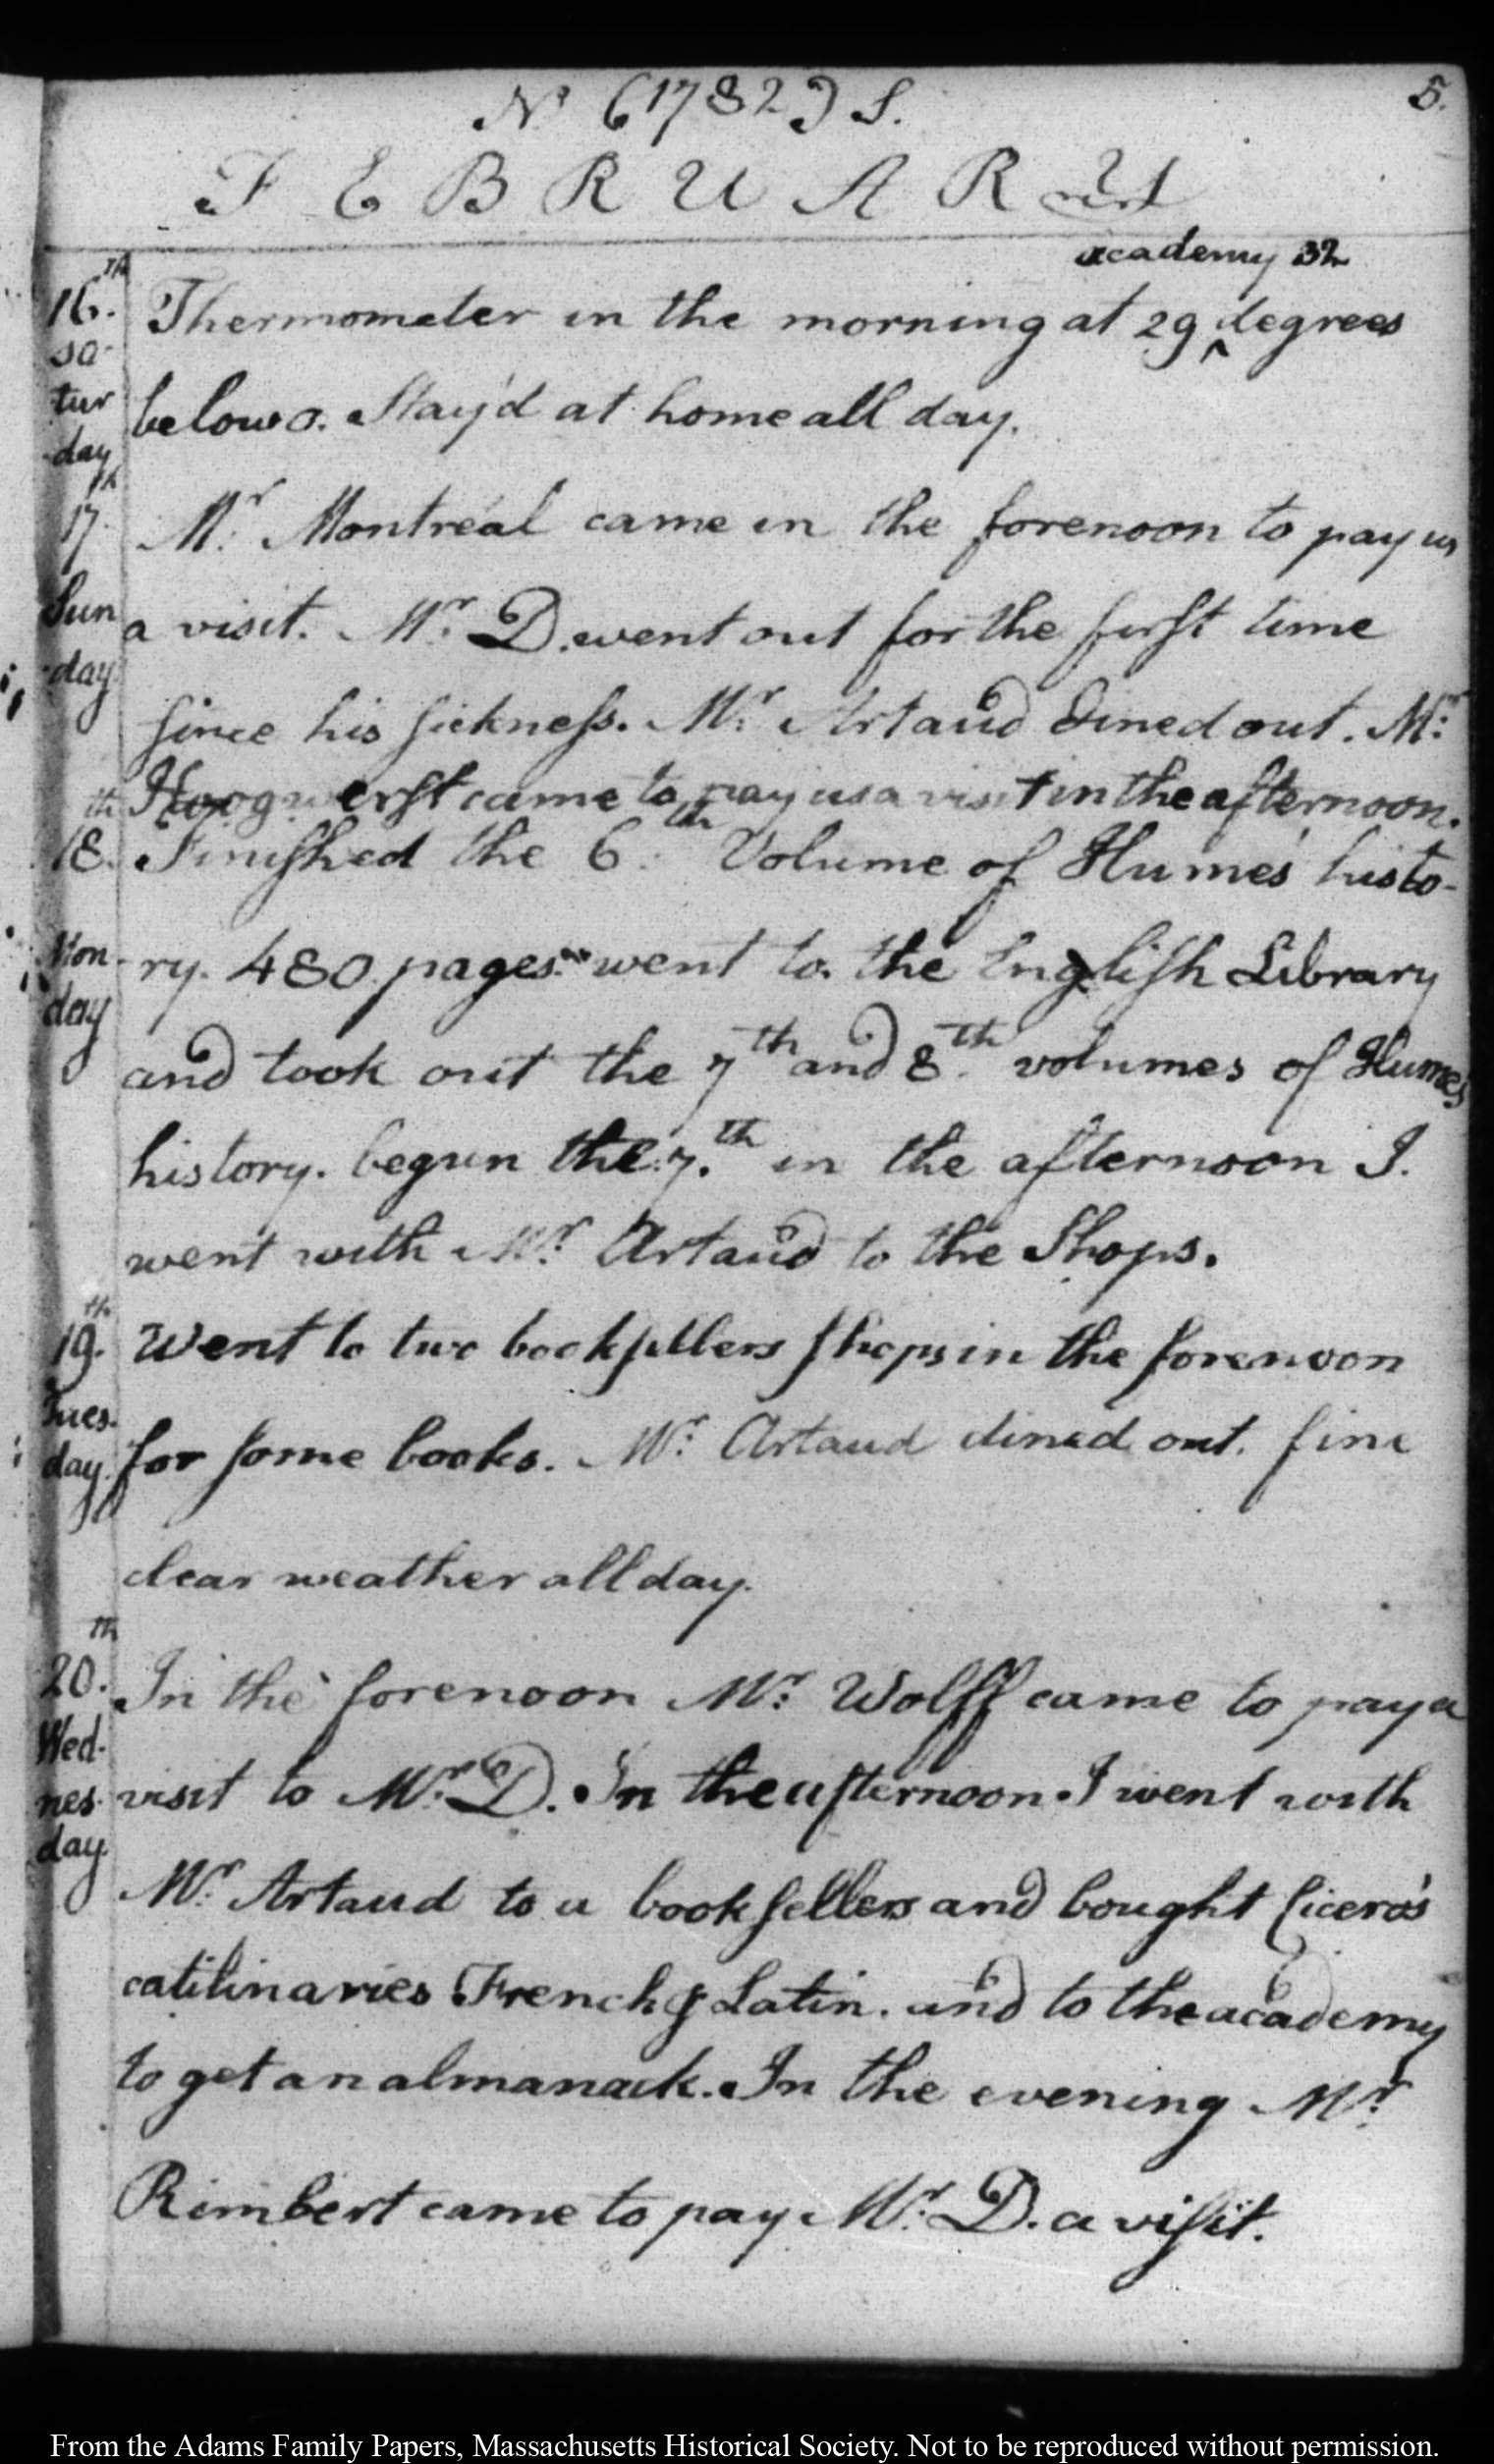 No. (1782) S. 5.
FEBRUARY
academy 32
16.th Thermometer in the morning at 29 ^ degrees
Sa-
tur
-day
below 0. Stay'd at home all day.
17th Mr. Montréal came in the forenoon to pay us
Sun
-day
a visit. Mr. D. went out for the first time
since his sickness. Mr. Artaud dined out. Mr.
Hoogwerst came to pay us a visit in the afternoon.
18.th Finished the 6.th Volume of Hume's histo-
Mon-
day
ry. 480 pages went to the English Library
and took out the 7th and 8th. volumes of Humes
history. begun the 7.th in the afternoon I.
went with Mr. Artaud to the Shops.
19.th Went to two booksellers shops in the forenoon
Tues-
day.
for some books. Mr. Artaud dined out. fine
clear weather all day.
20.th In the forenoon Mr. Wolff came to pay a
Wed-
nes-
day.
visit to Mr. D. In the afternoon I went with
Mr. Artaud to a booksellers and bought Cicero's
catilinaries French & Latin. and to the academy
to get an almanack. In the evening Mr.
Rimbert came to pay Mr. D. a visit.
From the Adams Family Papers, Massachusetts Historical Society. Not to be reproduced without permission.